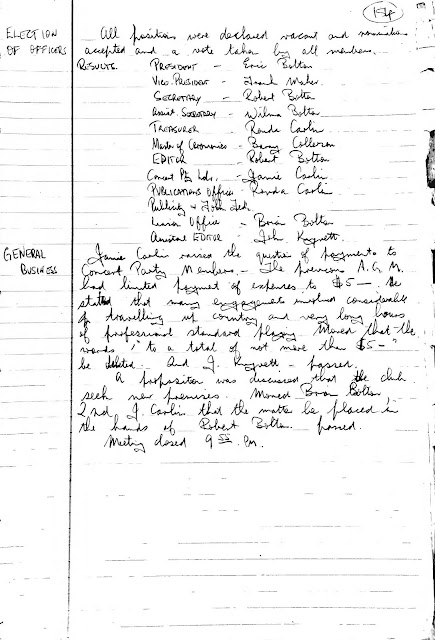 194
ELECTION OF OFFICERS
All positions were declared vacant and nominations
accepted and a vote taken by all members.
RESULTS. PRESIDENT - Eric Bolton
VICE PRESIDENT - Frank Maher
SECRETARY - Robert Bolton
Assist. Secretary - Wilma Bolton
TREASURER - Randa Carlin
Master of Ceremonies - Barry Calleron
EDITOR - Robert Bolton
Concert Pty Ldr. - Jamie Carlin
PUBLICATIONS Officer - Randa Carlin
Publicity &
Liaison Officer - Brian Bolton
Assistant EDITOR - Joh. Kygnett.
GENERAL BUSINESS
Jamie Carlin raised the question of payments to
Concert Party Members. - The previous A.G.M.
had limited payment of expenses to $5 - He
stated that many engagements involved considerable
travelling up country and very long hours
of professional standard playing. Moved that the
words " to a total of not more than $5 - "
be deleted. - 2nd J. Kygnett - passed.
A proposition was discussed that the club
seek new premises. Moved Brian Bolton,
2nd J. Carlin that the matter be placed in
the hands of Robert Bolton. passed.
Meeting closed 9 pm.